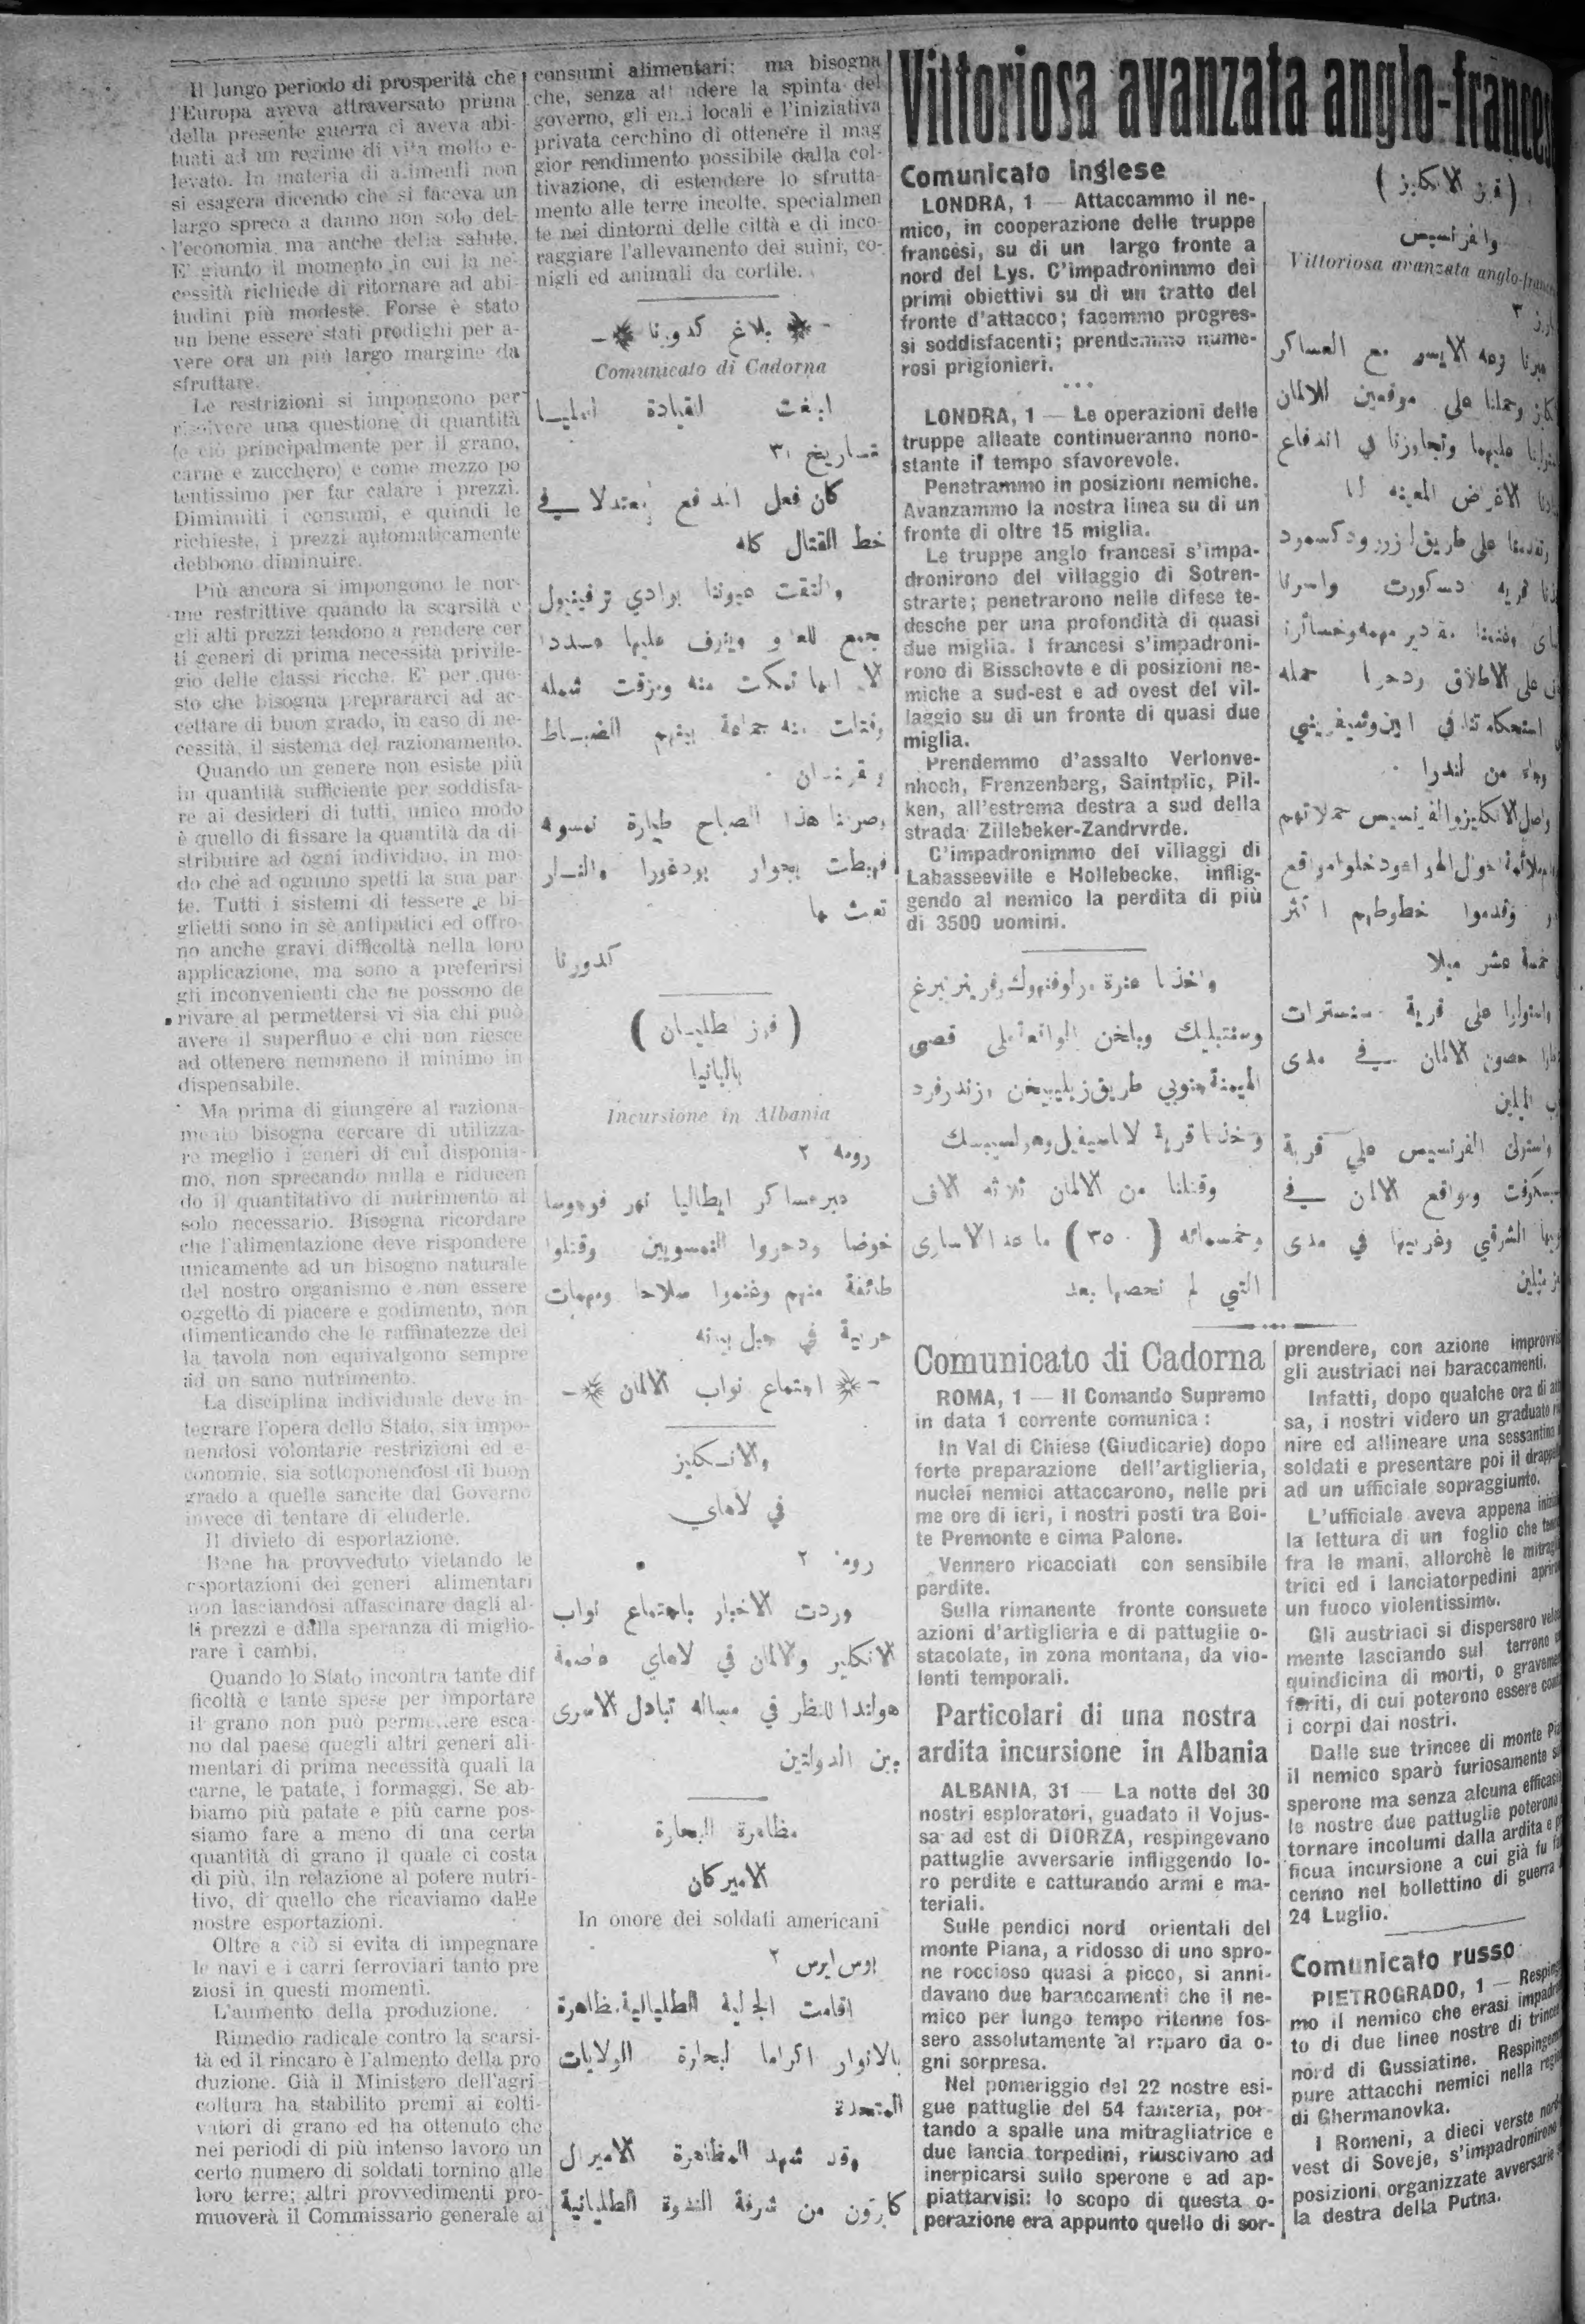 Il lungo periodo di prosperità che
l'Europa aveva attraversato prima
della presente guerra ci aveva abi-
tuati ad un regime di vita molto e-
levato. In materia di alimenti non
si esagera dicendo che si faceva un
largo spreco a danno non solo del-
l'economia ma anche della salute.
E' giunto il momento in cui la ne-
cessità richiede di ritornare ad abi-
tudini più modeste. Forse è stato
un bene essere stati prodighi per a-
vere ora un più largo margine da
sfruttare.
Le restrizioni si impongono per
risolvere una questione di quantità
(e ciò principalmente per il grano,
carne e zucchero) e come mezzo po
tentissimo per far calare i prezzi.
Diminuiti i consumi, e quindi le
richieste, i prezzi automaticamente
debbono diminuire.
Più ancora si impongono le nor-
me restrittive quando la scarsità e
gli alti prezzi tendono a rendere cer
ti generi di prima necessità privile-
gio delle classi ricche. E' per que-
sto che bisogna preprararci ad ac-
cettare di buon grado, in caso di ne-
cessità, il sistema del razionamento.
Quando un genere non esiste più
in quantità sufficiente per soddisfa-
re ai desideri di tutti, unico modo
è quello di fissare la quantità da di-
stribuire ad ogni individuo, in mo-
do che ad ognuno spetti la sua par-
te. Tutti i sistemi di tessere e bi-
glietti sono in sè antipatici ed offro-
no anche gravi difficoltà nella loro
applicazione, ma sono a preferirsi
gli inconvenienti che ne possono de
rivare al permettersi vi sia chi può
avere il superfluo e chi non riesce
ad ottenere nemmeno il minimo in
dispensabile.
Ma prima di giungere al raziona-
mento bisogna cercare di utilizza-
re meglio i generi di cui disponia-
mo, non sprecando nulla e riducen
do il quantitativo di nutrimento al
solo necessario. Bisogna ricordare
che l'alimentazione deve rispondere
unicamente ad un bisogno naturale
del nostro organismo e non essere
oggetto di piacere e godimento, non
dimenticando che le raffinatezze del
la tavola non equivalgono sempre
ad un sano nutrimento.
La disciplina individuale deve in
tegrare l'opera dello Stato, sia impo-
nendosi volontarie restrizioni ed e-
conomie, sia sottoponendosi di buon
grado a quelle sancite dal Governo
invece di tentare di eluderle.
Il divieto di esportazione.
Bene ha provveduto vietando le
esportazioni dei generi alimentari
non lasciandosi affascinare dagli al-
ti prezzi e dalla speranza di miglio-
rare i cambi.
Quando lo Stato incontra tante dif
ficoltà e tante spese per importare
il grano non può permettere esca-
no dal paese quegli altri generi ali-
mentari di prima necessità quali la
carne, le patate, i formaggi. Se ab-
biamo più patate e più carne pos-
siamo fare a meno di una certa
quantità di grano il quale ci costa
di più, iln relazione al potere nutri-
tivo, di quello che ricaviamo dalle
nostre esportazioni.
Oltre a ciò si evita di impegnare
le navi e i carri ferroviari tanto pre
ziosi in questi momenti.
L'aumento della produzione.
Rimedio radicale contro la scarsi-
tà ed il rincaro è l'almento della pro
duzione. Già il Ministero dell'agri
coltura ha stabilito premi ai colti-
vatori di grano ed ha ottenuto che
nei periodi di più intenso lavoro un
certo numero di soldati tornino alle
loro terre; altri provvedimenti pro-
muoverà il Commissario generale ai
consumi alimentari; ma bisogna
che, senza attendere la spinta del
governo, gli enti locali e l'iniziativa
privata cerchino di ottenere il mag
gior rendimento possibile dalla col-
tivazione, di estendere lo sfrutta-
mento alle terre incolte, specialmen
te nei dintorni delle città e di inco-
raggiare l'allevamento dei suini, co-
nigli ed animali da cortile.
بلاغ كدورنا
Comunicato di Cadorna
ابلغت القيادة العليا
بتاريخ ٣١
كان فعل المدافع معتدلا في
خط القتال كله
والتقت عيوننا بوادي ترفينيول
بجمع للعدو
لا انها تمكنت منه ومزقت شمله
وقتلت منه جماعة بينهم الضباط
هذا الصباح طيارة نمسوية
فهبطت بجوار والنار
تعبث بها
كدورنا
( فوز طليان )
بالبانيا
Incursione in Albania
رومة ٢
عبر عساكر ايطاليا نهر فوجوسا
خوضا ودحروا النمسويين وقتلوا
طائفة منهم وغنموا سلاحا ومهمات
حربية في جبل بيانه
اجتماع نواب الالمان
والانكليز
في لاهاي
رومة ٢
وردت الاخبار باجتماع نواب
الانكليز والالمان في لاهاي عاصمة
هولندا للنظر في مسالة تبادل الاسرى
بين الدولتين
مظاهرة البحارة
الاميركان
In onore dei soldati americani
بونس ايرس ٢
اقامت الجالية الطليانية مظاهرة
بالانوار اكراما لبحارة الولايات
المتحدة
وقد شهد المظاهرة الاميرال
كابرتون من شرفة الندوة الطليانية
Vittoriosa avanzata anglo-francese
Comunicato inglese
LONDRA, 1 — Attaccammo il ne-
mico, in cooperazione delle truppe
francesi, su di un largo fronte a
nord del Lys. C'impadronimmo dei
primi obiettivi su di un tratto del
fronte d'attacco; facemmo progres-
si soddisfacenti; prendemmo nume-
rosi prigionieri.
* * *
LONDRA, 1 — Le operazioni delle
truppe alleate continueranno nono-
stante il tempo sfavorevole.
Penetrammo in posizioni nemiche.
Avanzammo la nostra linea su di un
fronte di oltre 15 miglia.
Le truppe anglo francesi s'impa-
dronirono del villaggio di Sotren-
strarte; penetrarono nelle difese te-
desche per una profondità di quasi
due miglia. I francesi s'impadroni-
rono di Bisschovte e di posizioni ne-
miche a sud-est e ad ovest del vil-
laggio su di un fronte di quasi due
miglia.
Prendemmo d'assalto Verlonve-
nhoch, Frenzenberg, Saintplic, Pil-
ken, all'estrema destra a sud della
strada Zillebeker-Zandrvrde.
C'impadronimmo dei villaggi di
Labasseeville e Hollebecke, inflig-
gendo al nemico la perdita di più
di 3500 uomini.
( فوز الانكليز )
والفرنسيس
Vittoriosa avanzata anglo-francese
عبرنا وجه الايسر مع العساكر
وحملنا على موقعين للالمان
عليهما وتجاوزنا في اندفاع
الاغراض المعينة لنا
وتقدمنا على طريق
قرية دسكورت واسرنا
وغنمنا مقادير مهمة وخسائرنا
على الاطلاق ردحرنا حمله
وجاء من لندرا
واصل الانكليز والفرنسيس حملاتهم
وقدموا خطوطهم اكثر
خمسة عشر ميلا
واستولوا على قرية
حصون الالمان في مدى
الميلين
واستولى الفرنسيس على قرية
ومواقع الالمان في
الشرقي وغربيها في مدى
ميلين
واخذنا عنوة
طريق
وخذنا قرية
وقتلنا من الالمان ثلاثة الاف
وخمسمائه ( ٣٥٠٠ ) ما عدا الاسارى
التي لم نحصها بعد
Comunicato di Cadorna
ROMA, 1 — Il Comando Supremo
in data 1 corrente comunica :
In Val di Chiese (Giudicarie) dopo
forte preparazione dell'artiglieria,
nuclei nemici attaccarono, nelle pri
me ore di ieri, i nostri posti tra Boi-
te Premonte e cima Palone.
Vennero ricacciati con sensibile
perdite.
Sulla rimanente fronte consuete
azioni d'artiglieria e di pattuglie o-
stacolate, in zona montana, da vio-
lenti temporali.
Particolari di una nostra
ardita incursione in Albania
ALBANIA, 31 — La notte del 30
nostri esploratori, guadato il Vojus-
sa ad est di DIORZA, respingevano
pattuglie avversarie infliggendo lo-
ro perdite e catturando armi e ma-
teriali.
Sulle pendici nord orientali del
monte Piana, a ridosso di uno spro-
ne roccioso quasi a picco, si anni-
davano due baraccamenti che il ne-
mico per lungo tempo ritenne fos-
sero assolutamente al riparo da o-
gni sorpresa.
Nel pomeriggio del 22 nostre esi-
gue pattuglie del 54 fanteria, por-
tando a spalle una mitragliatrice e
due lancia torpedini, riuscivano ad
inerpicarsi sullo sperone e ad ap-
piattarvisi: lo scopo di questa o-
perazione era appunto quello di sor-
prendere, con azione improvvisa
gli austriaci nei baraccamenti.
Infatti, dopo qualche ora di
sa, i nostri videro un graduato
nire ed allineare una sessantina
soldati e presentare poi il drappello
ad un ufficiale sopraggiunto.
L'ufficiale aveva appena
la lettura di un foglio che
fra le mani, allorchè le mitraglia
trici ed i lanciatorpedini aprirono
un fuoco violentissimo.
Gli austriaci si dispersero
mente lasciando sul terreno
quindicina di morti, o gravemente
feriti, di cui poterono essere
i corpi dai nostri.
Dalle sue trincee di monte
il nemico sparò furiosamente
sperone ma senza alcuna efficacia
le nostre due pattuglie poterono
tornare incolumi dalla ardita e
ficua incursione a cui già fu
cenno nel bollettino di guerra
24 Luglio.
Comunicato russo
PIETROGRADO, 1 — Respingem-
mo il nemico che erasi
to di due linee nostre di trincee
nord di Gussiatine. Respingemmo
pure attacchi nemici nella regione
di Ghermanovka.
I Romeni, a dieci verste
vest di Soveje, s'impadronirono
posizioni organizzate avversarie
la destra della Putna.